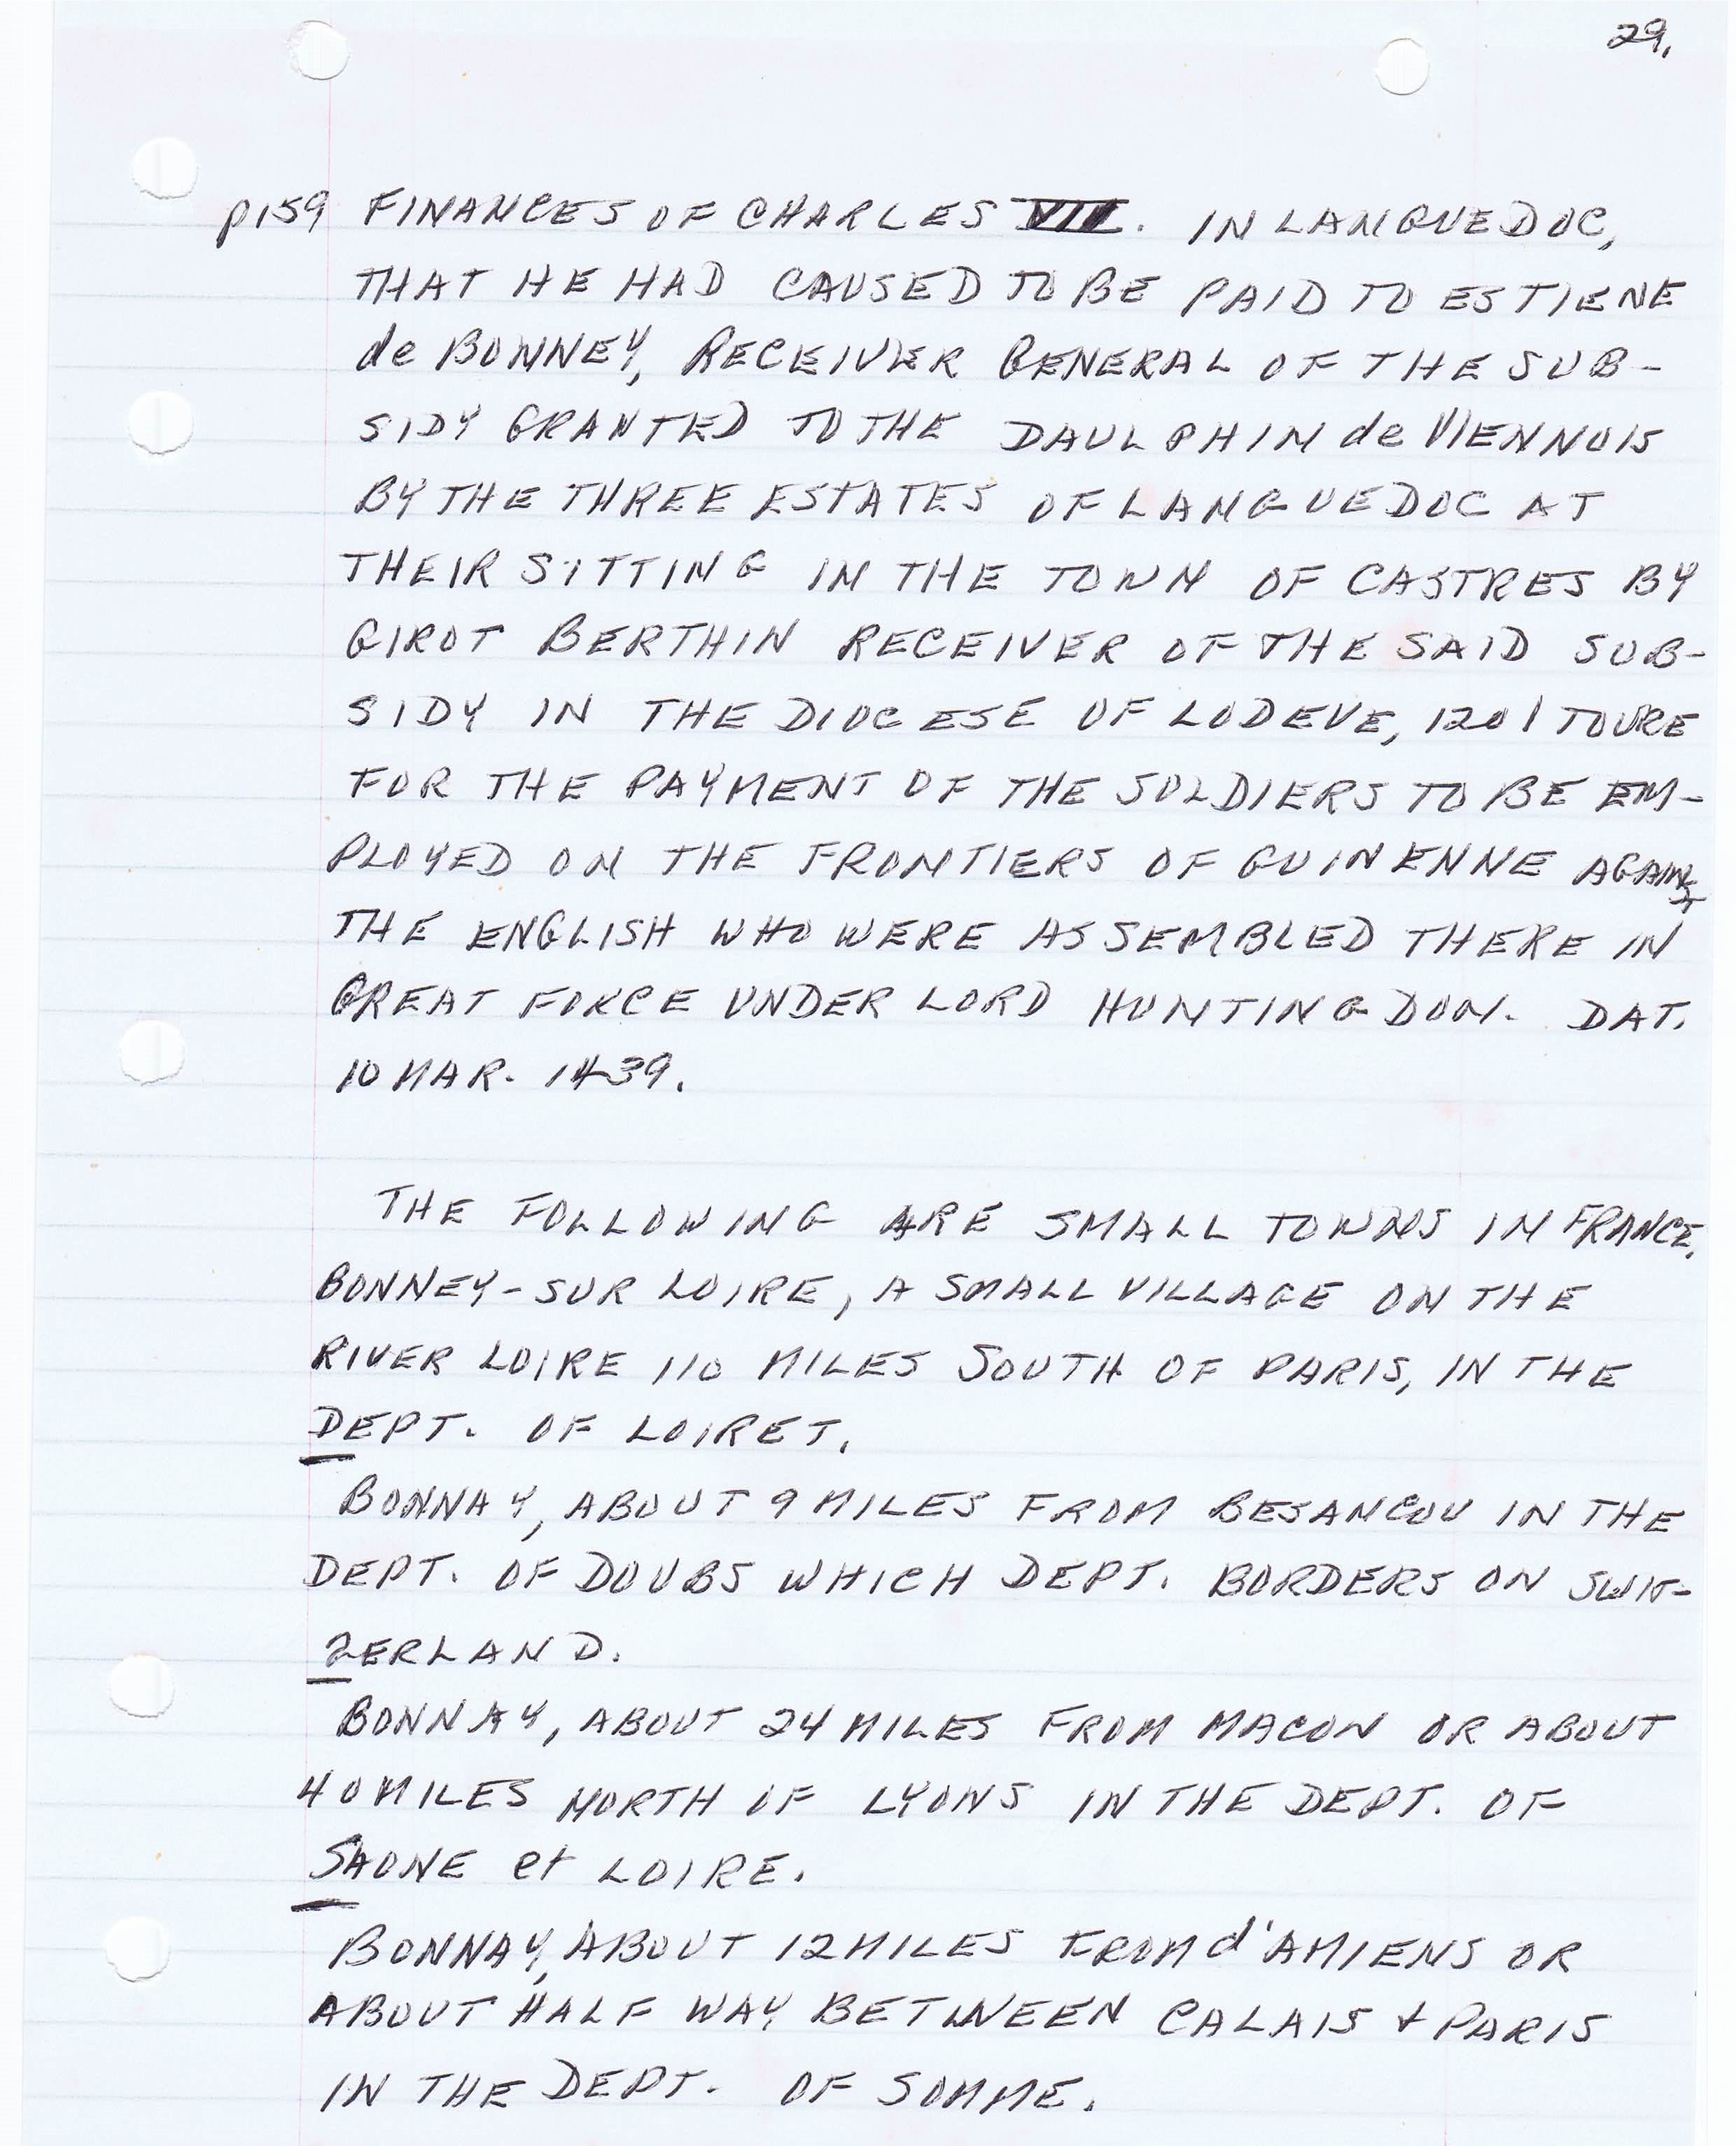 29.
p159 FINANCES OF CHARLES VII. IN LANGUEDOC,
THAT HE HAD CAUSED TO BE PAID TO ESTIENE
de BONNEY, RECEIVER GENERAL OF THE SUB-
SIDY GRANTED TO THE DAULPHIN de VIENNOIS
BY THE THREE ESTATES OF LANGUEDOC AT
THEIR SITTING IN THE TOWN OF CASTRES BY
GIROT BERTHIN RECEIVER OF THE SAID SUB-
SIDY IN THE DIOCESE OF LODEVE, 120 l TOURE
FOR THE PAYMENT OF THE SOLDIERS TO BE EM-
PLOYED ON THE FRONTIERS OF GUINENNE AGAINST
THE ENGLISH WHO WERE ASSEMBLED THERE IN
GREAT FORCE UNDER LORD HUNTINGDON. DAT.
10 MAR. 1439.
THE FOLLOWING ARE SMALL TOWNS IN FRANCE.
BONNEY-SUR LOIRE, A SMALL VILLAGE ON THE
RIVER LOIRE 110 MILES SOUTH OF PARIS, IN THE
DEPT. OF LOIRET.
BONNAY, ABOUT 9 MILES FROM BESANCOU IN THE
DEPT. OF DOUBS WHICH DEPT. BORDERS ON SWIT-
ZERLAND.
BONNAY, ABOUT 24 MILES FROM MACON OR ABOUT
40 MILES NORTH OF LYONS IN THE DEPT. OF
SAONE et LOIRE.
BONNAY, ABOUT 12 MILES FROM d'AMIENS OR
ABOUT HALF WAY BETWEEN CALAIS + PARIS
IN THE DEPT. OF SOMME.